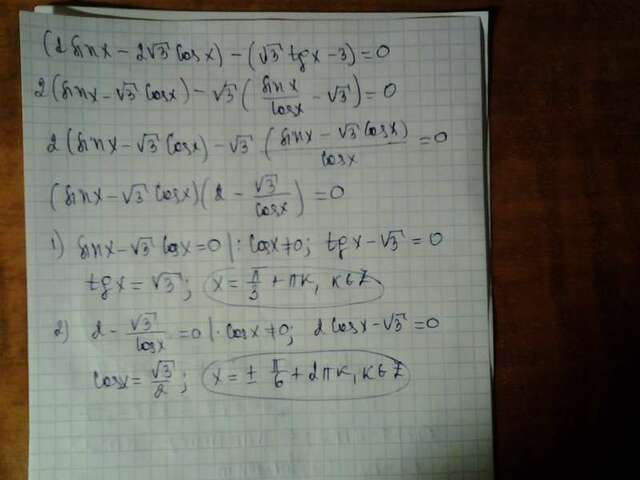 (2sinx - 2√3 cosx) - (√3 tgx - 3) = 0
2(sinx - √3 cosx) - √3 (sinx/cosx - √3) = 0
2(sinx - √3 cosx) - √3 · (sinx - √3 cosx)/cosx = 0
(sinx - √3 cosx)(2 - √3/cosx) = 0
1) sinx - √3 cosx = 0 |: cosx ≠ 0; tgx - √3 = 0
tgx = √3; x = π/3 + πk, k∈Z
2) 2 - √3/cosx = 0 |· cosx ≠ 0; 2cosx - √3 = 0
cosx = √3/2; x = ± π/6 + 2πk, k∈Z